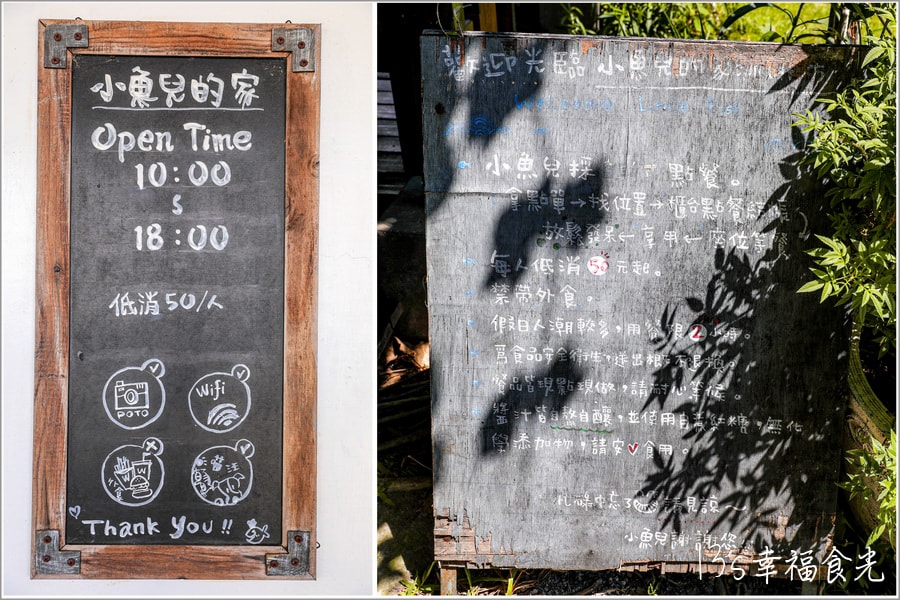 小魚兒的家
Open Time
10:00
18:00
低消50/人
POTO
Wifi
外食
Thank you!!
歡迎光臨 小魚兒的家
小魚兒採 點餐。
拿點單→找位置→櫃台點餐結帳
放鬆發呆←享用←座位等餐
每人低消50元起。
禁帶外食。
假日人潮較多,用餐限2小時。
爲食品安全衛生,送出概不退換。
餐品皆現點現做,請耐心等候。
醬汁皆自熬自釀,並使用自煮紅糖,無化
學添加物,請安✓食用。
忙碌中忘了 請見諒~
小魚兒謝謝您
135幸福食光